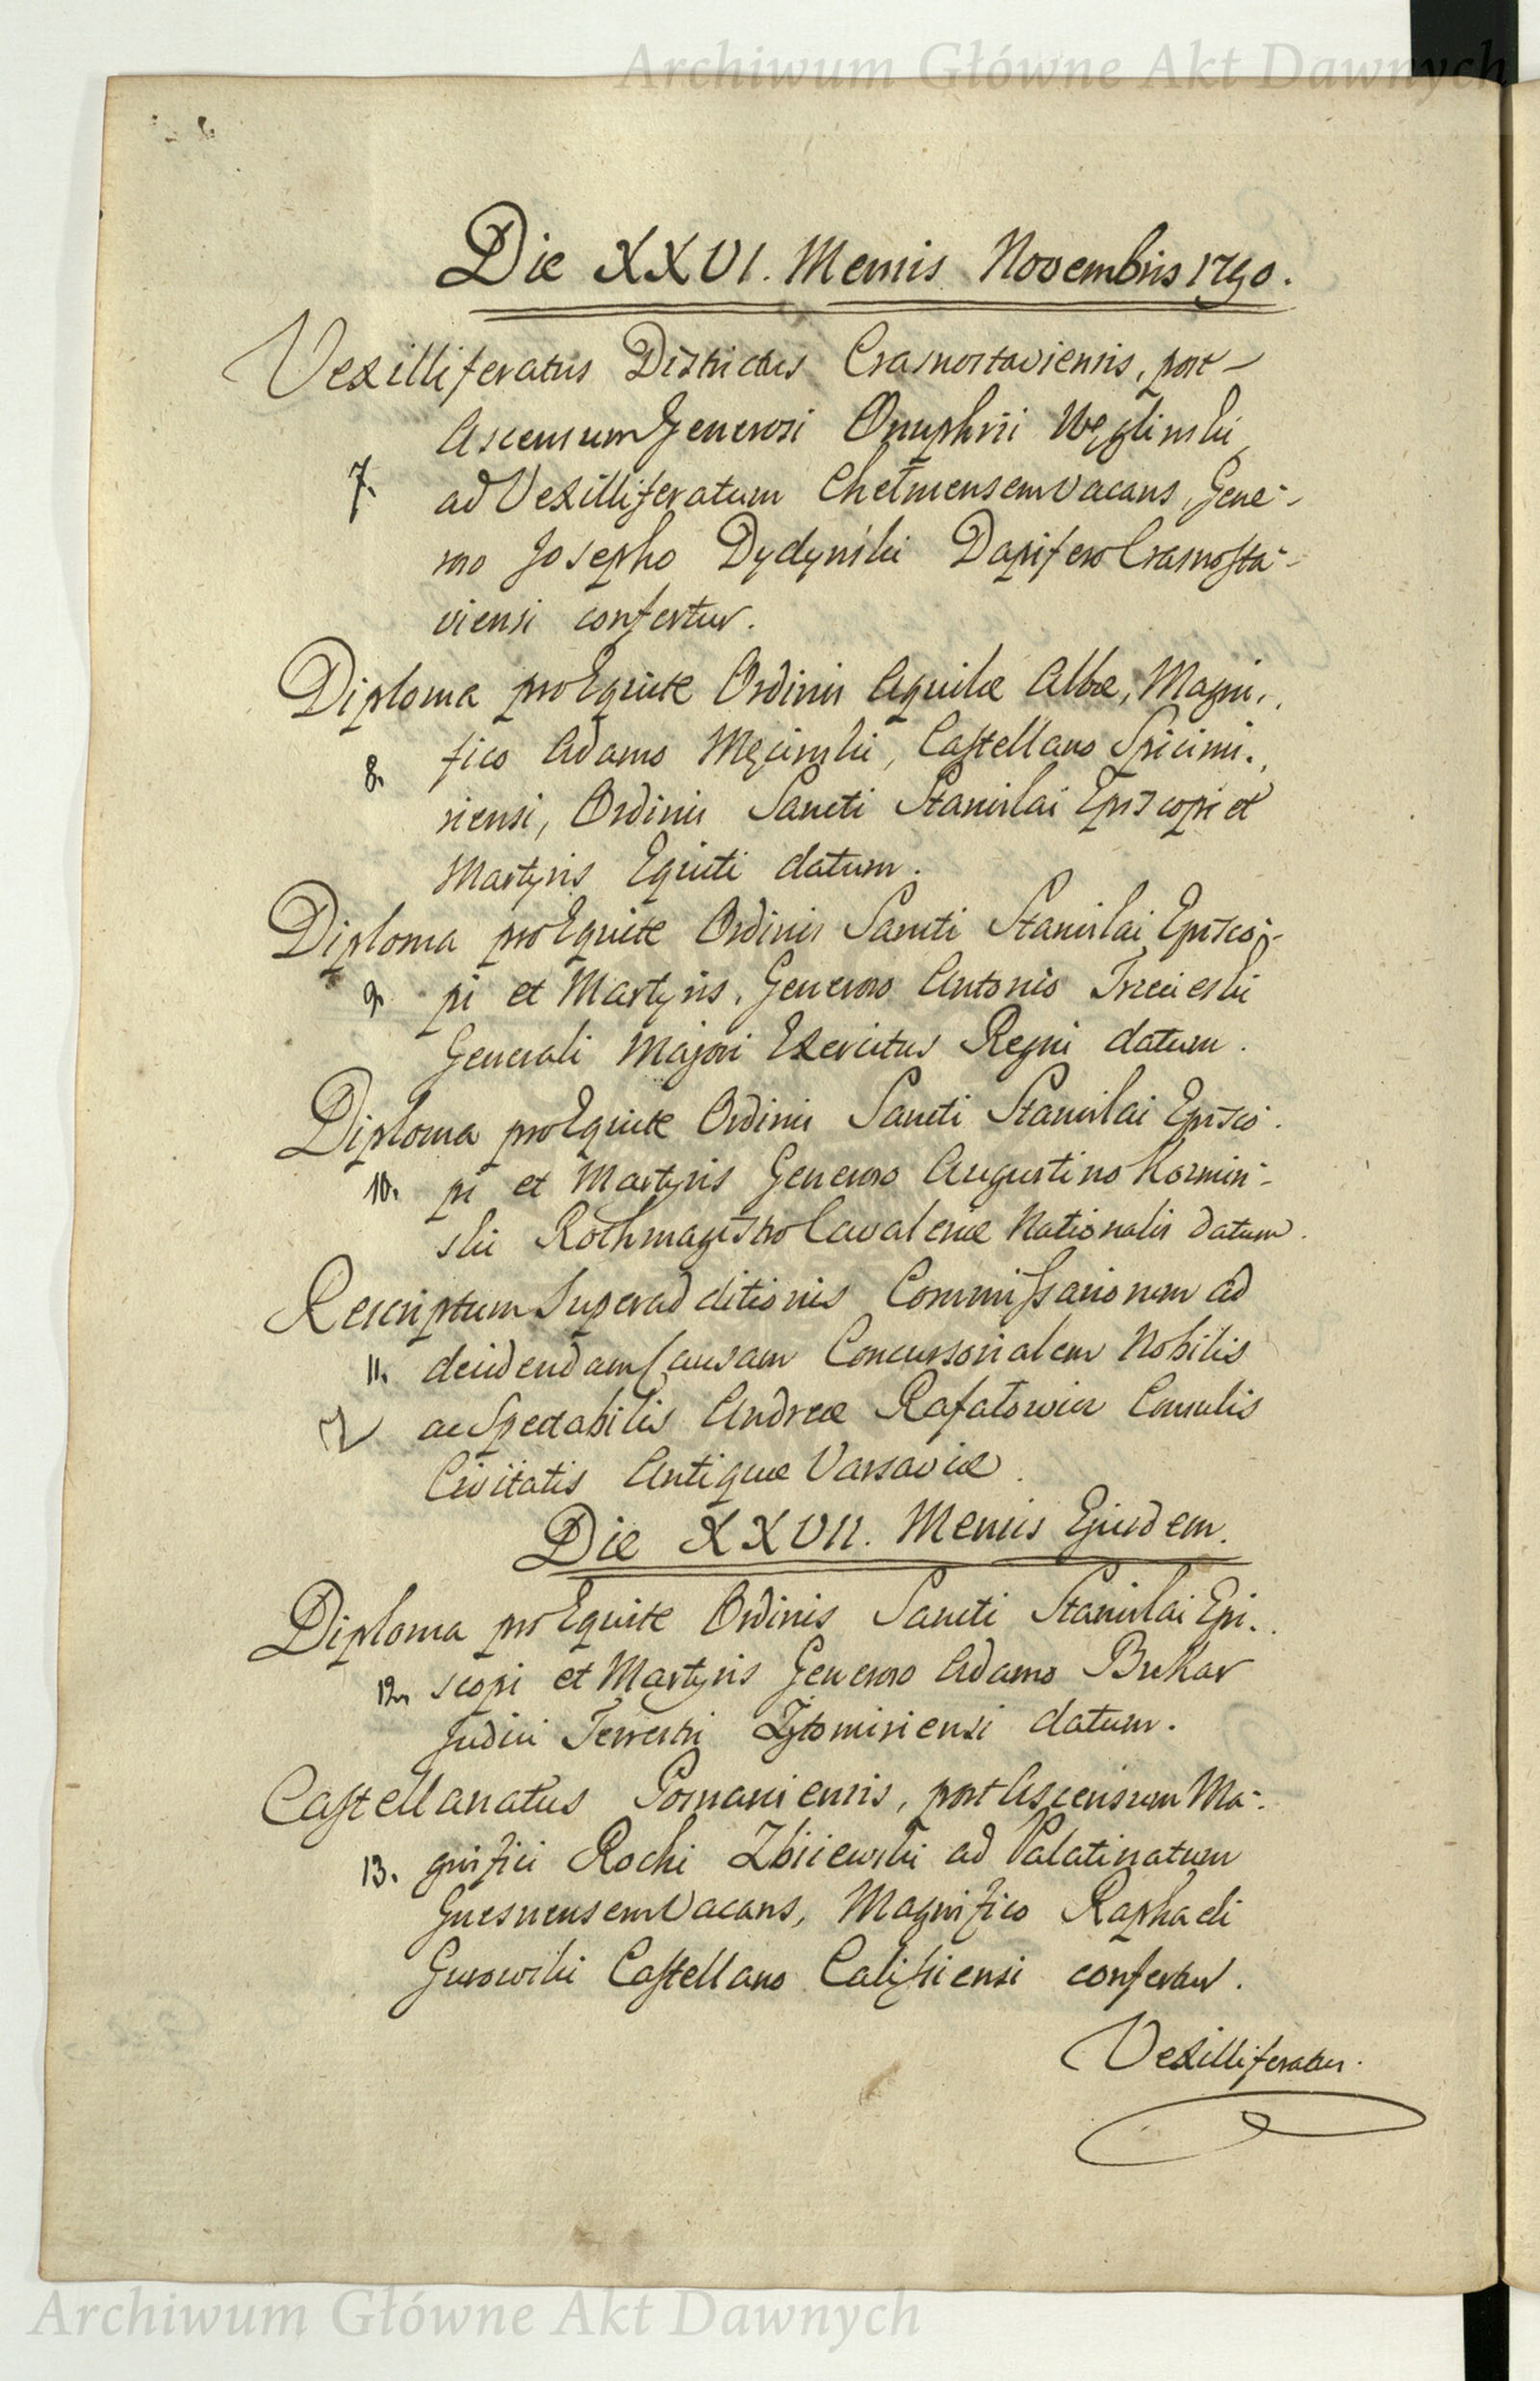 Archiwum Główne Akt Dawnych
Die XXVI. Mensis Novembris 1790.
Vexilliferatus Districtus Crasnostaviensis, post
Ascensum Generosi Onuphrii Węglinski
7. ad Vexilliferatum Chełmensem vacans, Gene-
roso Josepho Dydynski Dapifero Crasnosta-
viensi confertur.
Diploma pro Equite Ordinis Aquilæ Albæ, Magni-
8. fico Adamo Męcinski, Castellano Spicimi-
riensi, Ordinis Sancti Stanislai Episcopi et
Martyris Equiti datum.
Diploma pro Equite Ordinis Sancti Stanislai Episco-
9. pi et Martyris, Generoso Antonio Trzecieski
Generali Majori Exercitus Regni datum.
Diploma pro Equite Ordinis Sancti Stanislai Episco-
10. pi et Martyris Generoso Augustino Kozmin-
ski Rothmagistro Cavaleriæ Nationalis datum.
Rescriptum Superadditionis Commissariorum ad
11. decidendam Causam Concursorialem Nobilis
ac Spectabilis Andreæ Rafałowicz Consulis
Civitatis Antiquæ Varsaviæ.
Die XXVII. Mensis Ejusdem.
Diploma pro Equite Ordinis Sancti Stanislai Epi-
12. scopi et Martyris Generoso Adamo Bukar
Judici Terrestri Zÿtomiriensi datum.
Castellanatus Posnaniensis, post Ascensum Ma-
13. gnifici Rochi Zbiiewski ad Palatinatum
Gnesnensem vacans, Magnifico Raphaeli
Gurowski Castellano Calissiensi confertur.
Vexilliferatus.
Archiwum Główne Akt Dawnych